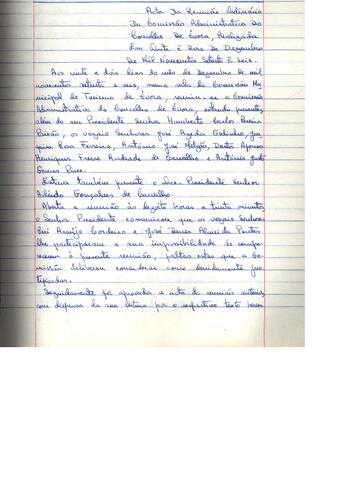 Acta Da Reunião Ordinária
Da Comissão Administrativa Do
Concelho De Évora, Realizada
Em Vinte E Dois De Dezembro
De Mil Novecentos Setenta E Seis.
Aos vinte e dois dias do mês de Dezembro de mil
novecentos setenta e seis, numa sala da Comissão Mu
nicipal de Turismo de Évora, reuniu-se a Comissão
Administrativa do Concelho de Évora, estando presentes,
além do seu Presidente Senhor Humberto Carlos Pereira
Paixão, os vogais Senhores José Ageda Godinho, Joa
quim Rosa Ferreira, António José Melgão, Doutor Afonso
Henriques Freire Andrade de Carvalho e António José
Gomes Pires.
Estava também presente o vice-Presidente Senhor
Arlindo Gonçalves de Carvalho.
Aberta a reunião às dezoito horas e trinta minutos
o Senhor Presidente comunicou que os vogais Senhores
Rui Araújo Cordeiro e José Almeida
lhe participaram a sua impossibilidade de compa
recerem à presente reunião, faltas estas que a Co
missão deliberou considerar como devidamente jus
tificadas.
Seguidamente foi aprovada a acta da reunião anterior
com dispensa da sua leitura por o respectivo texto haver